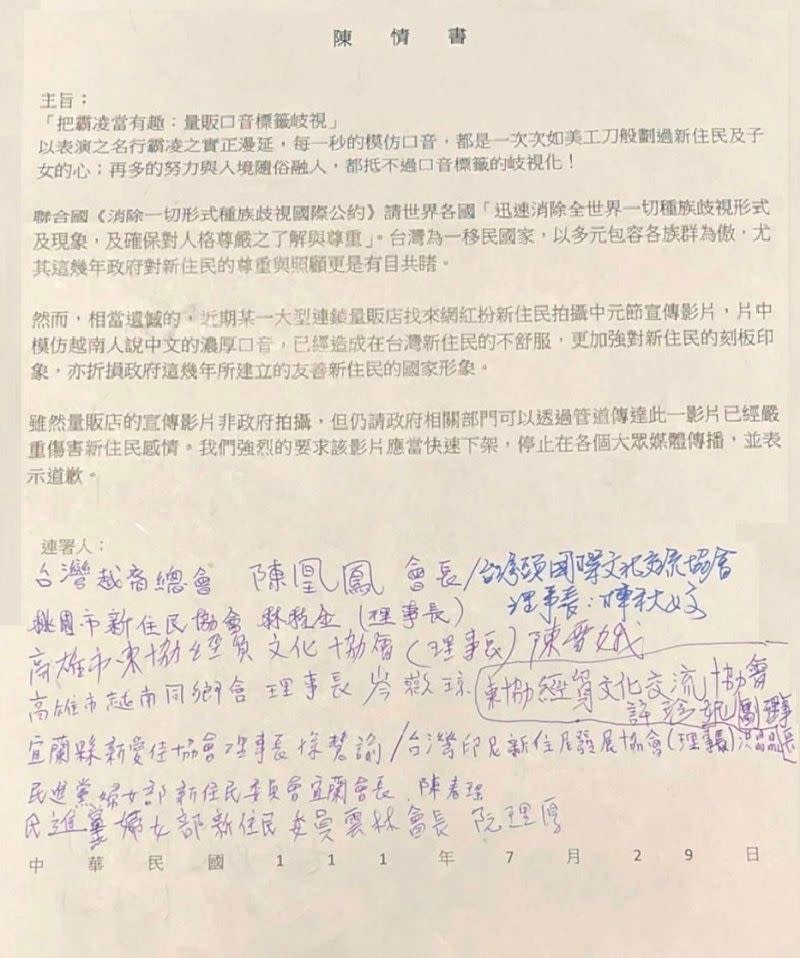 陳情書
主旨：
「把霸凌當有趣：量販口音標籤歧視」
以表演之名行霸凌之實正漫延，每一秒的模仿口音，都是一次次如美工刀般劃過新住民及子
女的心；再多的努力與入境隨俗融人，都抵不過口音標籤的歧視化！
聯合國《消除一切形式種族歧視國際公約》請世界各國「迅速消除全世界一切種族歧視形式
及現象，及確保對人格尊嚴之了解與尊重」。台灣為一移民國家，以多元包容各族群為傲，尤
其這幾年政府對新住民的尊重與照顧更是有目共睹。
然而，相當遺憾的，近期某一大型連鎖量販店找來網紅扮新住民拍攝中元節宣傳影片，片中
模仿越南人說中文的濃厚口音，已經造成在台灣新住民的不舒服，更加強對新住民的刻板印
象，亦折損政府這幾年所建立的友善新住民的國家形象。
雖然量販店的宣傳影片非政府拍攝，但仍請政府相關部門可以透過管道傳達此一影片已經嚴
重傷害新住民感情。我們強烈的要求該影片應當快速下架，停止在各個大眾媒體傳播，並表
示道歉。
連署人；
台灣越裔總會 陳凰鳳 會長/台灣國際文化交流協會
理事長：陳秋
桃園市新住民協會 林 (理事長)
高雄市東協經貿文化協會(理事長) 陳
高雄市越南同鄉會 理事長
東協經貿文化交流協會
許 副理事長
宜蘭縣新愛住協會理事長 /台灣印尼新住民發展協會(理事長)
民進黨婦女部新住民委員會宜蘭會長 陳春
民進黨婦女部新住民委員雲林會長 阮理厚
中華民國111年7月29日